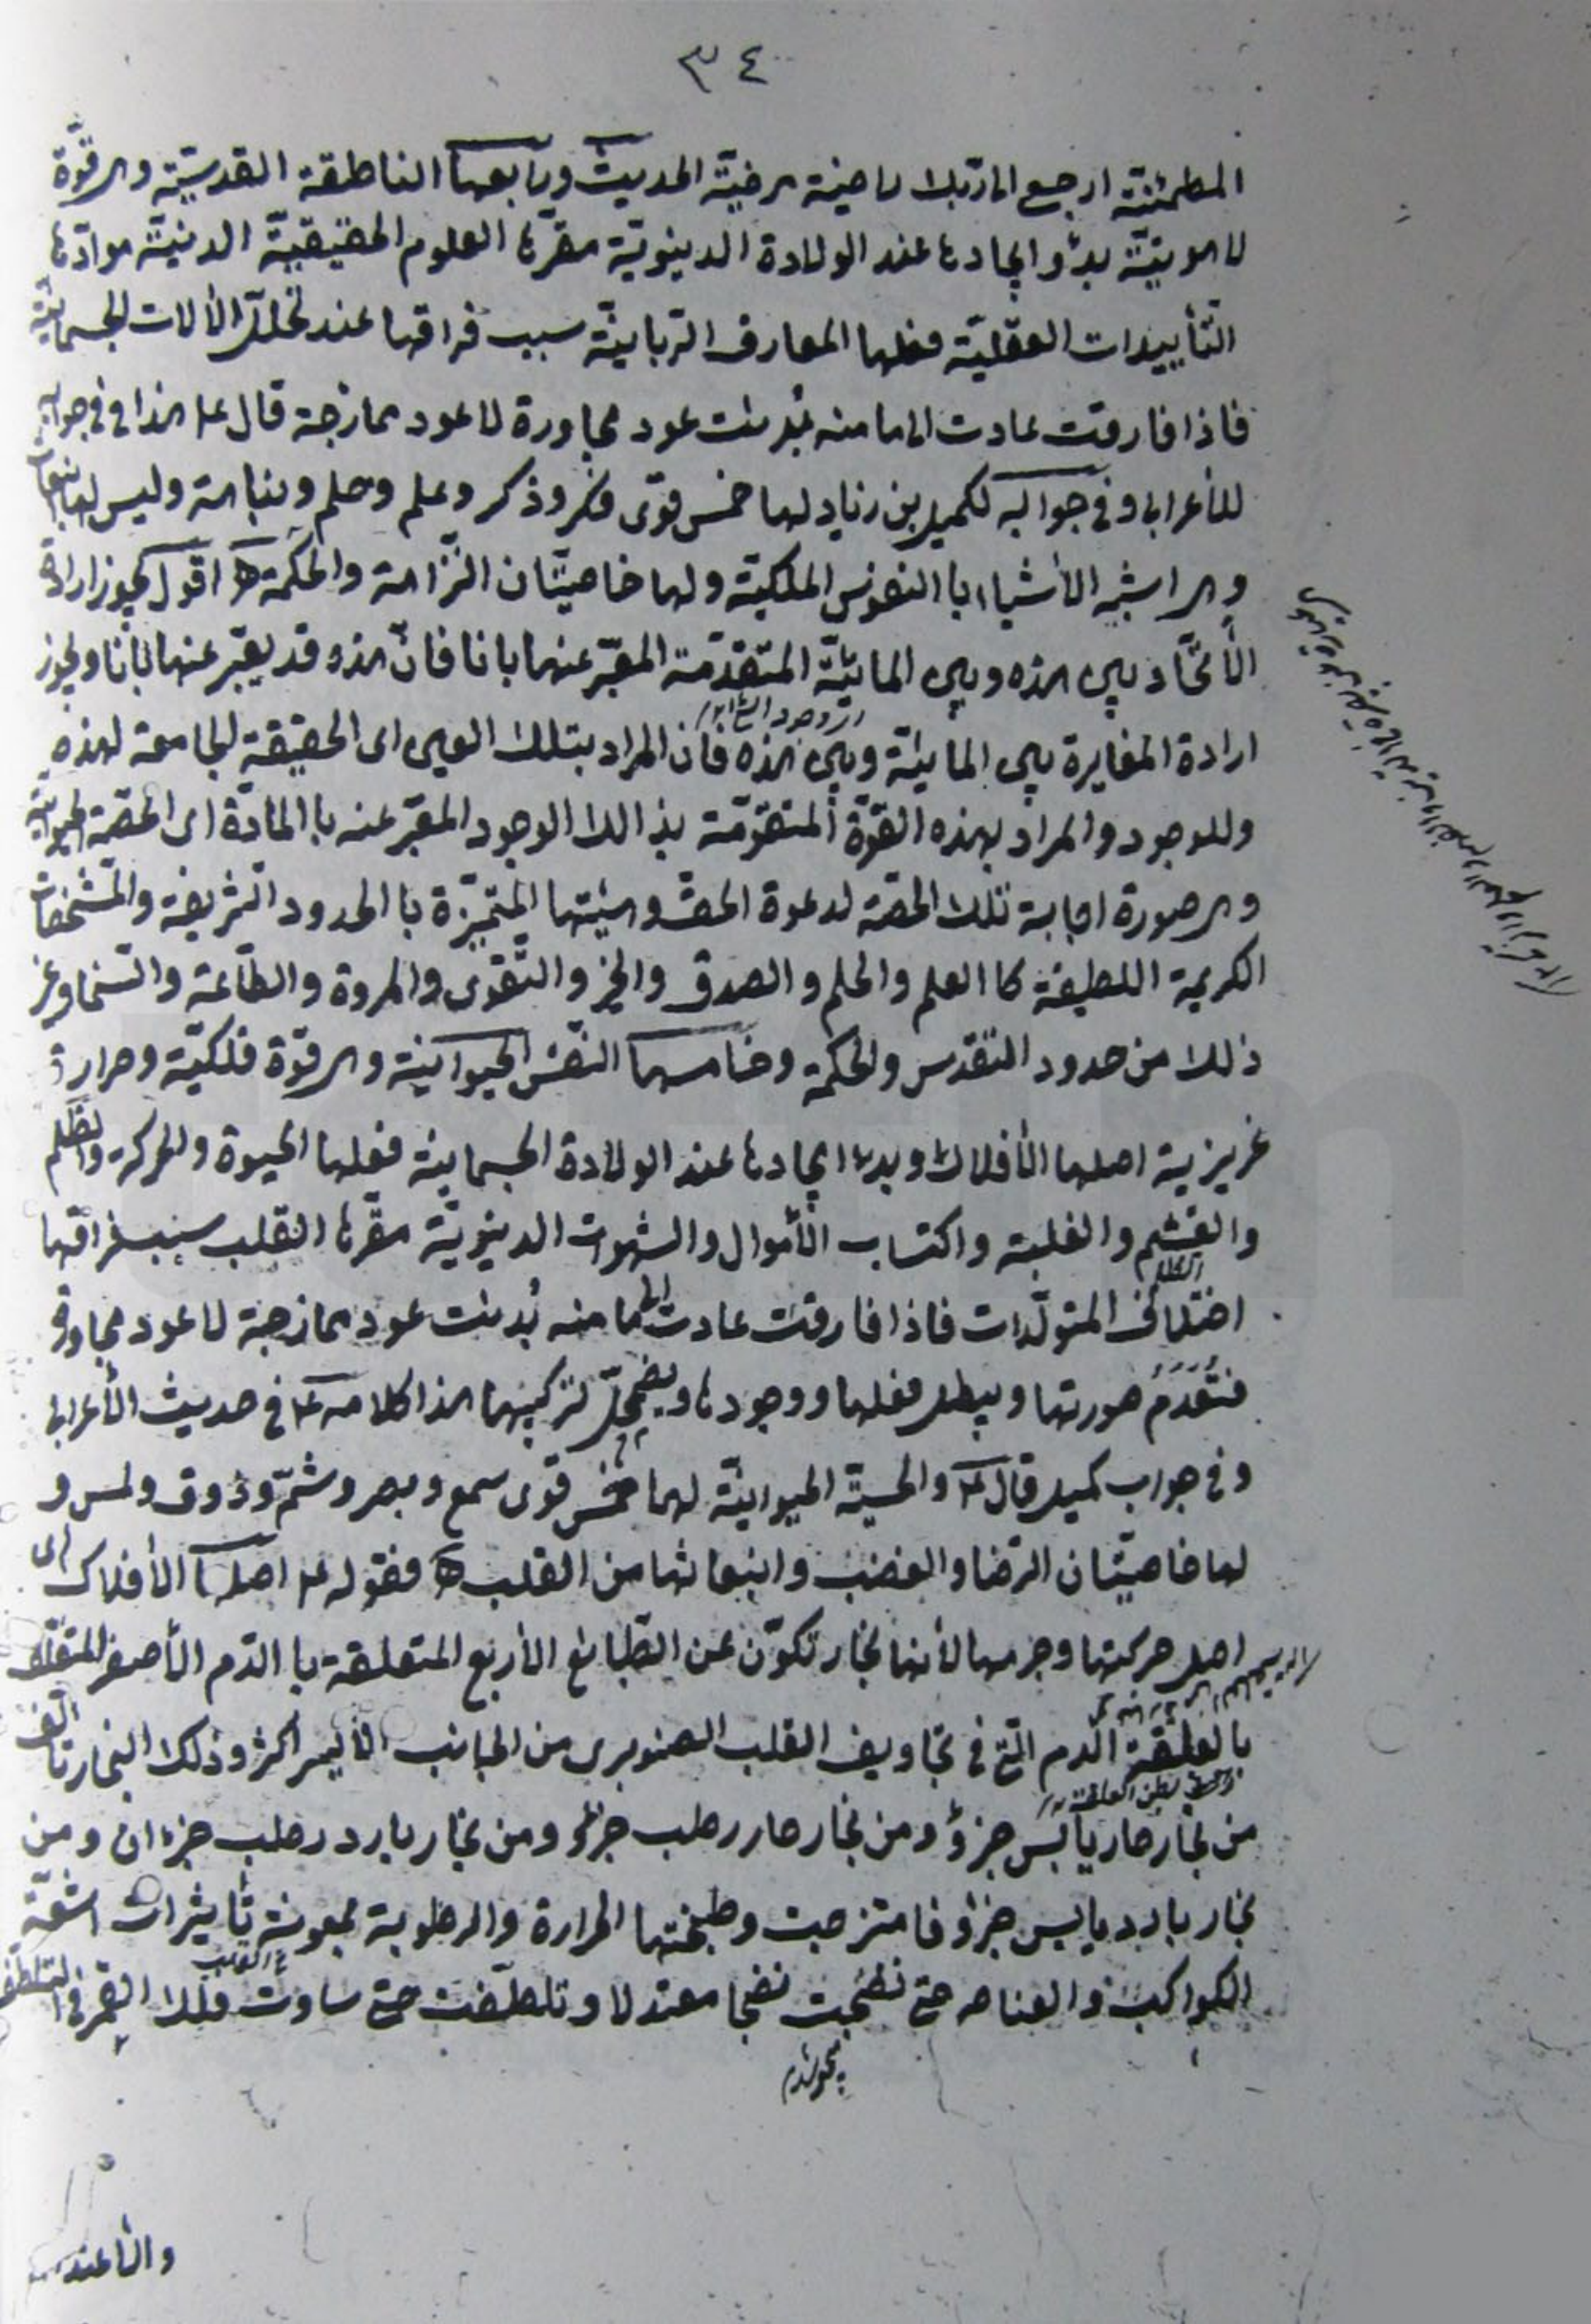 ٣٤
المطمئنّة ارجعی الی ربّك راضیة مرضیّة الحدیث ورابعها الناطقة القدسیّة وهی قوّة
لاهوتیّة بدؤ ایجادها عند الولادة الدینویّة مقرّها العلوم الحقیقیّة الدینیّة موادّها
التّأییدات العقلیّة فعلها المعارف الرّبانیّة سبب فراقها عند تحلّل الألات الجسمانیّة
فاذا فارقت عادت الی ما منه بُدِئت عود مجاورة لا عود ممازجة قال ع هذا فی جوابه
للأعرابی وفی جوابه لكمیل بن زیاد لها خمس قوی فكر وذكر وعلم وحلم ونباهة ولیس لها انبعاث
وهی اشبه الأشیاء باالنفوس الملكیّة ولها خاصیّتان النّزاهة والحكمة اقول یجوز ارادة
الأتّحاد بین هذه وبین المائیّة المتقدّمة المعبّر عنها بانا فانّ هذه قد یعبّر عنها بأنا ویجوز
ارادة المغایرة بین المائیّة وبین هذه فانّ المراد بتلك العین ای الحقیقة الجامعة لهذه
وللوجود والمراد بهذه القوّة المتقوّمة بذالك الوجود المعبّر عنه باالمادّة ای الحصّة الحیوانیّة
وهی صورة اجابة تلك الحصّة لدعوة الحقّ وهیئتها المتمیّزة باالحدود الشریفة والمشخّصات
الكریمة اللطیفة كاالعلم والحلم والصدق والخیر والتّقوی والمروة والطّاعة والسّخا وغیر
ذلك من حدود التقدس والحكمة وخامسها النّفس الحیوانیة وهی قوّة فلكیّة وحرارة
غریزیة اصلها الأفلاك وبدء ایجادها عند الولادة الجسمانیة فعلها الحیوة والحركة والظلم
والغشم والغلبة واكتساب الأموال والشهوات الدینویّة مقرّها القلب سبب فراقها
اختلاف المتولّدات فاذا فارقت عادت الی ما منه بُدئت عود ممازجة لا عود مجاورة
فتُعْدَمُ صورتها ویبطل فعلها ووجودها ویضمحلّ تركیبها هذا كلامه ع فی حدیث الأعرابی
وفی جواب كمیل قال ع والحسیّة الحیوانیّة لها خمس قوی سمع وبصر وشمّ وذوق ولمس و
لها خاصیّتان الرّضا والغضب وانبعاثها من القلب فقوله ع اصلها الأفلاك ای
اصل حركتها وجرمها لأنها بخار تكوّن عن الطّبایع الأربع المتعلقة باالدّم الأصفر المتعلق
بالعلقة الدم الّتی فی تجاویف القلب الصنوبری من الجانب الأیسر اكثر وذلك البخار تألّف
من بخار حار یابس جزؤ ومن بخار حار رطب جزؤ ومن بخار بارد رطب جزءان ومن
بخار بارد یابس جزؤ فامتزجت وطبختها الحرارة والرطوبة بمعونة تأثیرات اشعّة
الكواكب والعناصر حتی نضجت نضجا معتدلا وتلطّفت حتی ساوت فلك القمر فی التلطّف